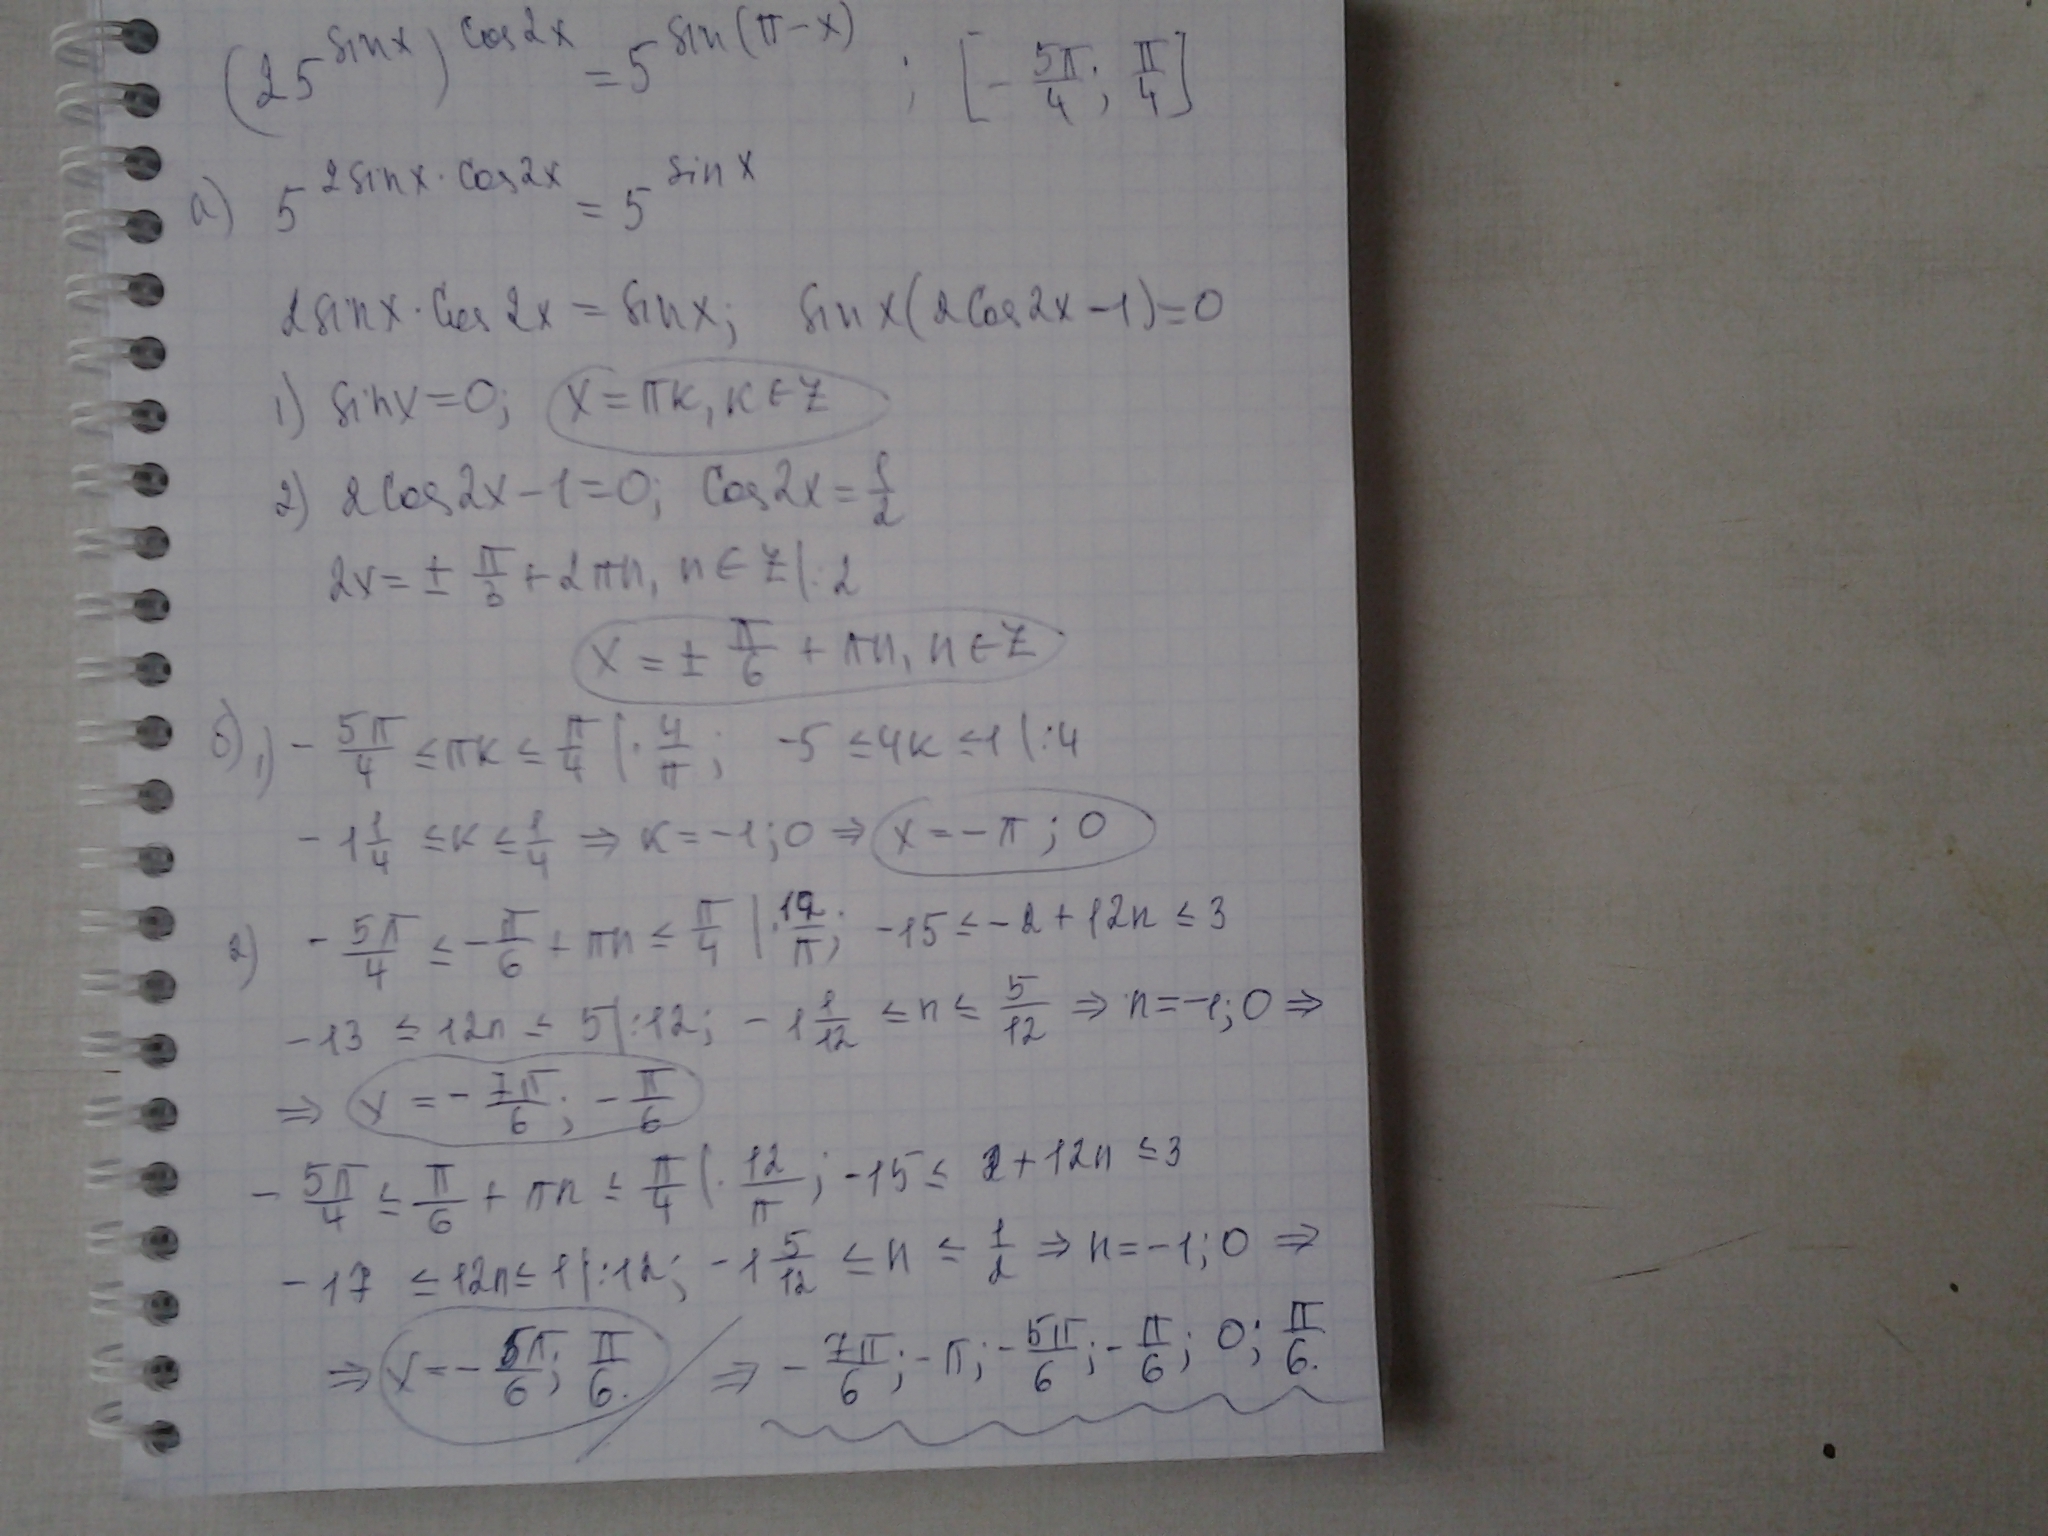 (25^sinx)^cos2x = 5^sin(π-x) ; [-5π/4; π/4]
а) 5^2sinx·cos2x = 5^sinx
2sinx·cos2x = sinx; sinx(2cos2x-1)=0
1) sinx=0; x=πк, к∈Z
2) 2cos2x-1=0; cos2x=1/2
2x=±π/3+2πn, n∈Z |:2
x=±π/6+πn, n∈Z
б) 1) -5π/4 ≤πк≤ π/4 |·4/π; -5≤4к≤1 |:4
-1 1/4 ≤к≤ 1/4 ⇒ к=-1;0 ⇒ x=-π;0
2) -5π/4 ≤ -π/6+πn ≤ π/4 |·12/π; -15≤-2+12n≤3
-13 ≤12n≤ 5 |:12; -1 1/12 ≤n≤ 5/12 ⇒ n=-1;0 ⇒
⇒ x=-7π/6; -π/6
-5π/4 ≤ π/6+πn ≤ π/4 |·12/π; -15≤ 2+12n≤3
-17 ≤12n≤1 |:12; -1 5/12 ≤n≤ 1/2 ⇒ n=-1;0 ⇒
⇒ x=-5π/6; π/6. ⇒ -7π/6; -π; -5π/6; -π/6; 0; π/6.